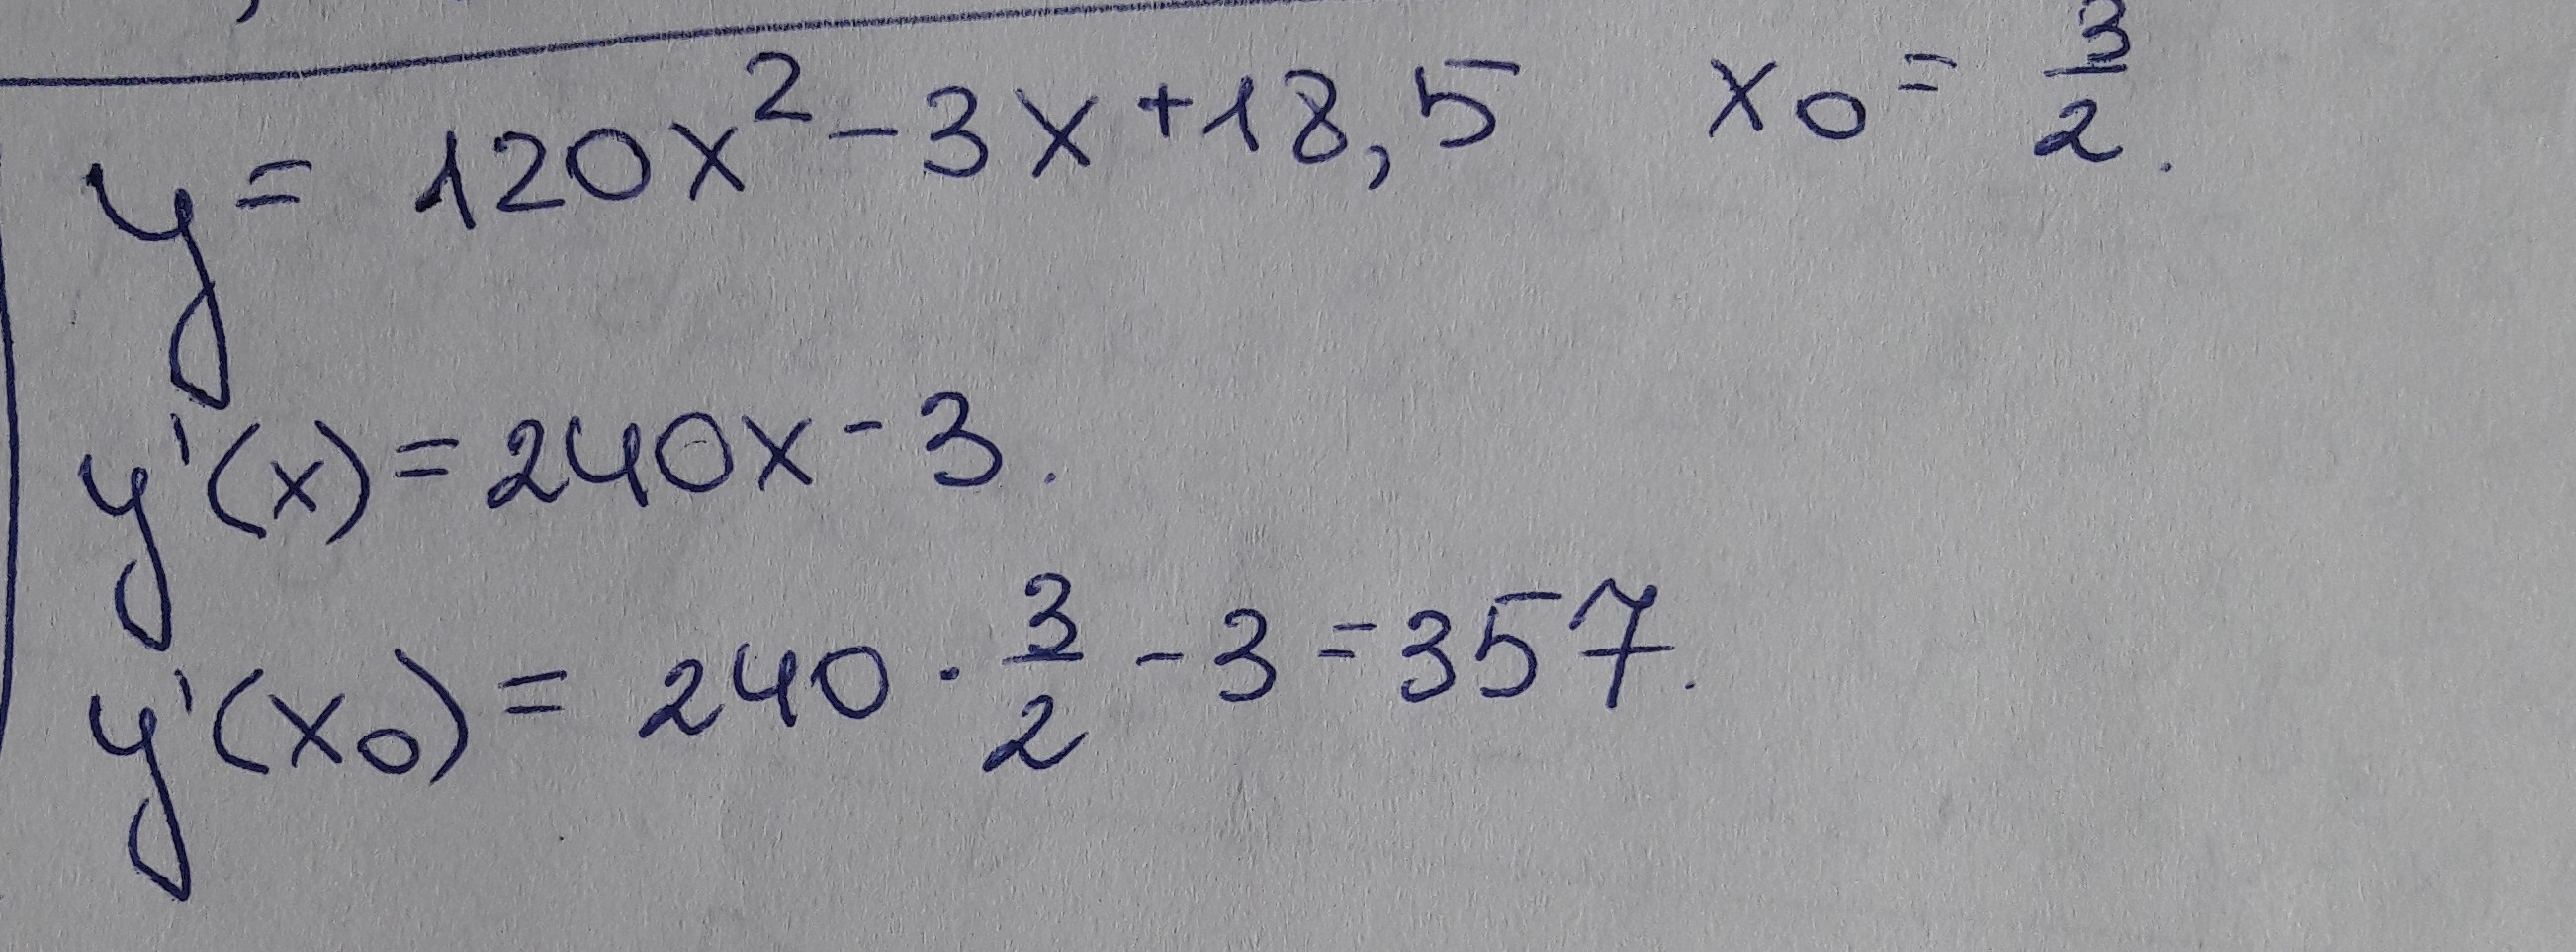 y = 120x² - 3x + 18,5 x₀ = 3/2.
y'(x) = 240x - 3.
y'(x₀) = 240 · 3/2 - 3 = 357.